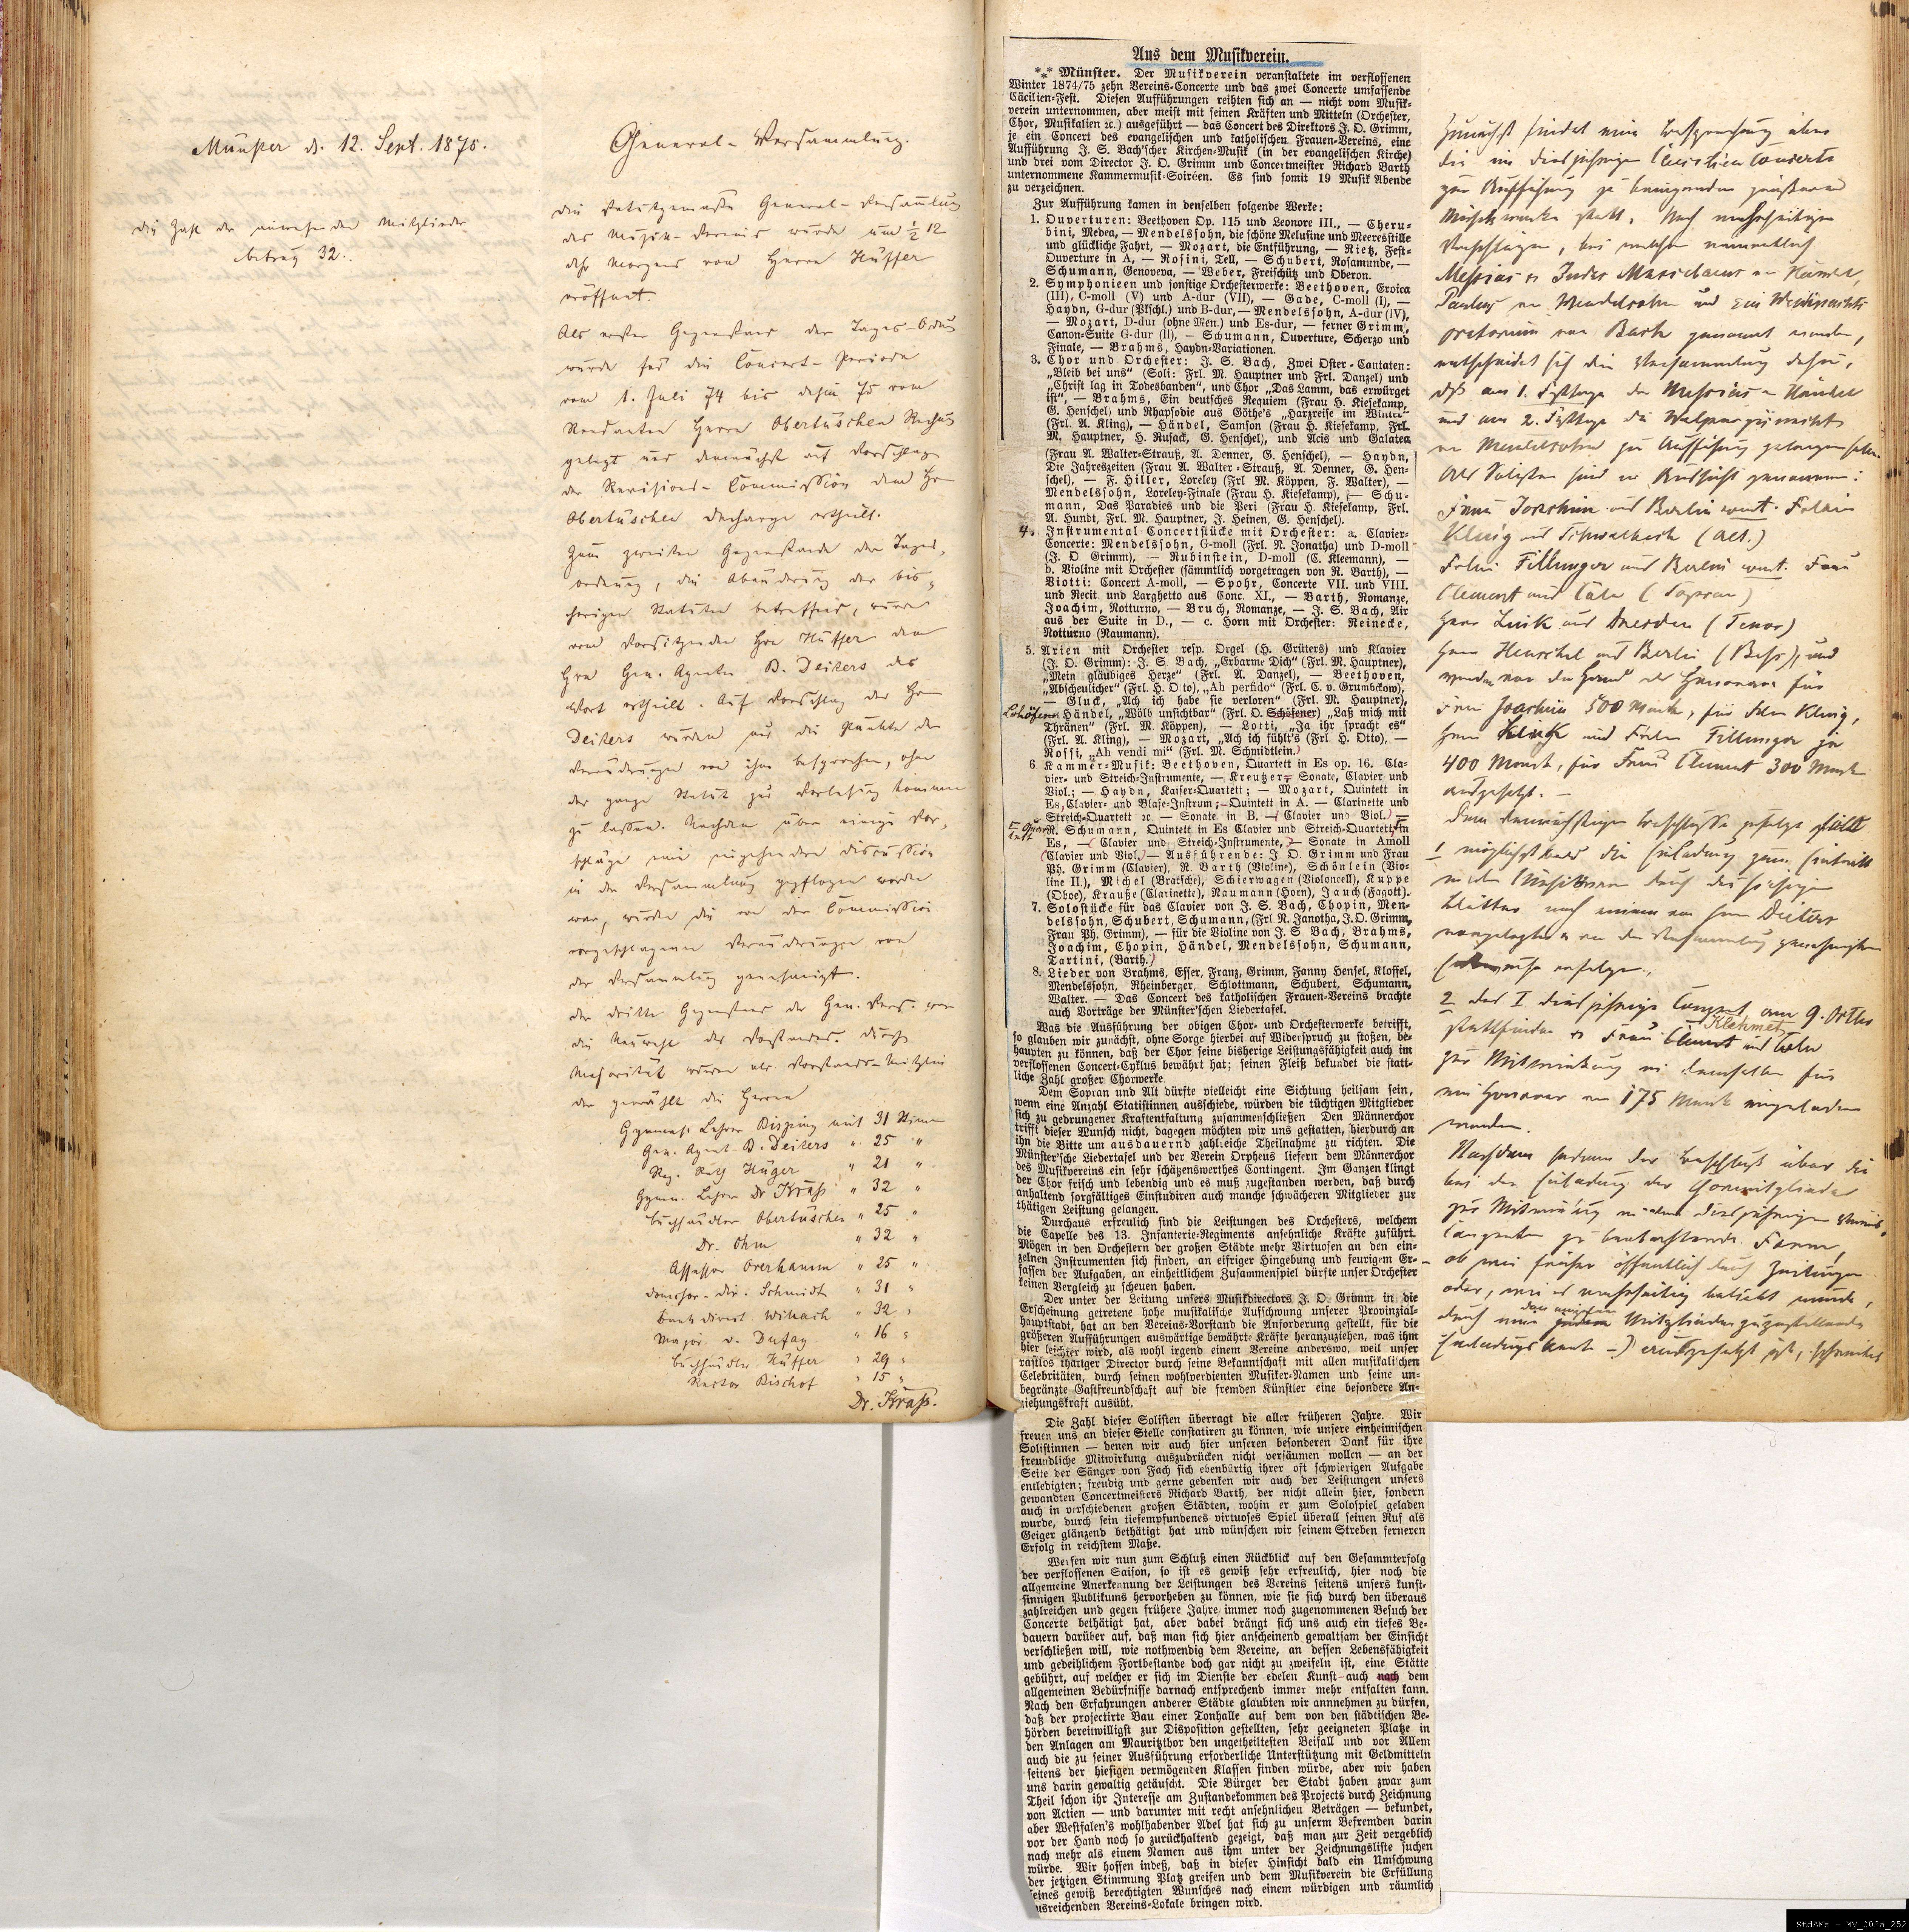 Münster d. 12. Sept. 1875.
Die Zahl der anwesenden Mitglieder
betrug 32.
General-Versammlung.
Die statutgemäße General-Versammlung
des Musik-Vereins wurde um ½ 12
Uhr Morgens von Herrn Hüffer
eröffnet.
Als erster Gegenstand der Tages-Ordnung
wurde für die Concert-Periode
vom 1. Juli 74 bis dahin 75 vom
Rendanten Herrn Obertüschen Rechnung
gelegt und demnächst auf Vorschlag
der Revisions-Commission dem Hrn
Obertüschen Decharge ertheilt.
Zum zweiten Gegenstande der Tages-
ordnung, die Abänderung der bis-
herigen Statuten betreffend, wurde
vom Vorsitzenden Hrn Hüffer dem
Hrn Gen. Agenten B. Deiters das
Wort ertheilt. Auf Vorschlag des Hrn
Deiters wurden nur die Punkte der
Veränderungen von ihm besprochen, ohne
das ganze Statut zur Vorlesung kommen
zu lassen. Nachdem über einige Vor-
schläge eine eingehendere Discussion
in der Versammlung gepflogen worden
war, wurden die von der Commission
vorgeschlagenen Veränderungen von
der Versammlung genehmigt.
Der dritte Gegenstand der Gen. Vers. war
die Neuwahl des Vorstandes. Durch
Majorität wurden als Vorstands-Mitglie
der gewählt die Herren
Gymnas. Lehrer Bisping mit 31 Stimmen
Gen. Agent B. Deiters " 25 "
Reg. Rath Hüger " 21 "
Gymn. Lehrer Dr Krass " 32 "
Buchhändler Obertüschen " 25 "
Dr. Ohm " 32 "
Assessor Overhamm " 25 "
Domchor-Dir. Schmidt " 31 "
Bankdirect. " 32 "
Major v. Dufay " 16 "
Buchhändler Hüffer " 29 "
Rector Bischof " 15 "
Dr. Krass.
Aus dem Musikverein.
*** Münster. Der Musikverein veranstaltete im verflossenen
Winter 1874/75 zehn Vereins-Concerte und das zwei Concerte umfassende
Cäcilien-Fest. Diesen Aufführungen reihten sich an — nicht vom Musik-
verein unternommen, aber meist mit seinen Kräften und Mitteln (Orchester,
Chor, Musikalien ꝛc.) ausgeführt — das Concert des Direktors J. O. Grimm,
je ein Concert des evangelischen und katholischen Frauen-Vereins, eine
Aufführung J. S. Bach'scher Kirchen-Musik (in der evangelischen Kirche)
und drei vom Director J. O. Grimm und Concertmeister Richard Barth
unternommene Kammermusik-Soiréen. Es sind somit 19 Musik Abende
zu verzeichnen.
Zur Aufführung kamen in denselben folgende Werke:
1. Ouverturen: Beethoven Op. 115 und Leonore III., — Cheru-
bini, Medea, — Mendelssohn, die schöne Melusine und Meeresstille
und glückliche Fahrt, — Mozart, die Entführung, — Rietz, Fest-
Ouverture in A, — Rosini, Tell, — Schubert, Rosamunde, —
Schumann, Genoveva, — Weber, Freischütz und Oberon.
2. Symphonieen und sonstige Orchesterwerke: Beethoven, Eroica
(III), C-moll (V) und A-dur (VII), — Gade, C-moll (I), —
Haydn, G-dur (Pkschl.) und B-dur, — Mendelssohn, A-dur (IV),
— Mozart, D-dur (ohne Men.) und Es-dur, — ferner Grimm,
Canon-Suite G-dur (II), — Schumann, Ouverture, Scherzo und
Finale, — Brahms, Haydn-Variationen.
3. Chor und Orchester: J. S. Bach, Zwei Oster-Cantaten:
„Bleib bei uns“ (Soli: Frl. M. Hauptner und Frl. Danzel) und
„Christ lag in Todesbanden“, und Chor „Das Lamm, das erwürget
ist“, — Brahms, Ein deutsches Requiem (Frau H. Kiesekamp,
G. Henschel) und Rhapsodie aus Göthe's „Harzreise im Winter“
(Frl. A. Kling), — Händel, Samson (Frau H. Kiesekamp, Frl.
M. Hauptner, H. Rusack, G. Henschel), und Acis und Galatea
(Frau A. Walter-Strauß, A. Denner, G. Henschel), — Haydn,
Die Jahreszeiten (Frau A. Walter-Strauß, A. Denner, G. Hen-
schel), — F. Hiller, Loreley (Frl M. Köppen, F. Walter), —
Mendelssohn, Loreley-Finale (Frau H. Kiesekamp), — Schu-
mann, Das Paradies und die Peri (Frau H. Kiesekamp, Frl.
A. Hundt, Frl. M. Hauptner, J. Heinen, G. Henschel).
4. Instrumental Concertstücke mit Orchester: a. Clavier-
Concerte: Mendelssohn, G-moll (Frl. N. Jonatha) und D-moll
(J. O Grimm), — Rubinstein, D-moll (C. Kleemann), —
b. Violine mit Orchester (sämmtlich vorgetragen von R. Barth), —
Viotti: Concert A-moll, — Spohr, Concerte VII. und VIII.
und Recit. und Larghetto aus Conc. XI., — Barth, Romanze,
Joachim, Notturno, — Bruch, Romanze, — J. S. Bach, Air
aus der Suite in D., — c. Horn mit Orchester: Reinecke,
Notturno (Naumann).
5. Arien mit Orchester resp. Orgel (H. Grüters) und Klavier
(J. O. Grimm): J. S. Bach, „Erbarme Dich“ (Frl. M. Hauptner),
„Mein gläubiges Herze“ (Frl. A. Danzel), — Beethoven,
„Abscheulicher“ (Frl. H. Otto), „Ah perfido“ (Frl. C. v. Grumbckow),
— Gluck, „Ach ich habe sie verloren“ (Frl. M. Hauptner),
Händel, „Wölb unsichtbar“ (Frl. O. Schösener) „Laß mich mit
Thränen“ (Frl. M. Köppen), — Lotti, „Ja ihr spracht es“
(Frl. A. Kling), — Mozart, „Ach ich fühl's (Frl H. Otto), —
Rossi, „Ah rendi mi“ (Frl. M. Schmidtlein.)
6 Kammer-Musik: Beethoven, Quartett in Es op. 16. Cla-
vier- und Streich-Instrumente, — Kreutzer- Sonate, Clavier und
Viol.; — Haydn, Kaiser-Quartett; — Mozart, Quintett in
Es, Clavier- und Blase-Instrum; — Quintett in A. — Clarinette und
Streich-Quartett ꝛc — Sonate in B. — (Clavier und Viol.) —
R. Schumann, Quintett in Es Clavier und Streich-Quartett, in
Es, — (Clavier und Streich-Instrumente,) — Sonate in Amoll
(Clavier und Viol.) — Ausführende: J. O. Grimm und Frau
Ph. Grimm (Clavier), R. Barth (Violine), Schönlein (Vio-
line II.), Michel (Bratsche), Schierwagen (Violoncell), Kuppe
(Oboe), Krauße (Clarinette), Naumann (Horn), Jauch (Fagott).
7. Solostücke für das Clavier von J. S. Bach, Chopin, Men-
delssohn, Schubert, Schumann, (Frl. N. Janotha, J.O. Grimm,
Frau Ph. Grimm), — für die Violine von J. S. Bach, Brahms,
Joachim, Chopin, Händel, Mendelssohn, Schumann,
Tartini, (Barth.)
8. Lieder von Brahms, Esser, Franz, Grimm, Fanny Hensel, Kloffel,
Mendelssohn, Rheinberger, Schlottmann, Schubert, Schumann,
Walter. — Das Concert des katholischen Frauen-Vereins brachte
auch Vorträge der Münster'schen Liedertafel.
Was die Ausführung der obigen Chor- und Orchesterwerke betrifft,
so glauben wir zunächst, ohne Sorge hierbei auf Widerspruch zu stoßen, be-
haupten zu können, daß der Chor seine bisherige Leistungsfähigkeit auch im
verflossenen Concert-Cyklus bewährt hat; seinen Fleiß bekundet die statt-
liche Zahl großer Chorwerke
Dem Sopran und Alt dürfte vielleicht eine Sichtung heilsam sein,
wenn eine Anzahl Statistinnen ausschiede, würden die tüchtigen Mitglieder
sich zu gedrungener Kraftentfaltung zusammenschließen Den Männerchor
trifft dieser Wunsch nicht, dagegen möchten wir uns gestatten, hierdurch an
ihn die Bitte um ausdauernd zahlreiche Theilnahme zu richten. Die
Münster'sche Liedertafel und der Verein Orpheus liefern dem Männerchor
des Musikvereins ein sehr schätzenswerthes Contingent. Im Ganzen klingt
der Chor frisch und lebendig und es muß zugestanden werden, daß durch
anhaltend sorgfältiges Einstudiren auch manche schwächeren Mitglieder zur
thätigen Leistung gelangen.
Durchaus erfreulich sind die Leistungen des Orchesters, welchem
die Capelle des 13. Infanterie-Regiments ansehnliche Kräfte zuführt.
Mögen in den Orchestern der großen Städte mehr Virtuosen an den ein-
zelnen Instrumenten sich finden, an eifriger Hingebung und feurigem Er-
fassen der Aufgaben, an einheitlichem Zusammenspiel dürfte unser Orchester
keinen Vergleich zu scheuen haben.
Der unter der Leitung unsers Musikdirectors J. O. Grimm in die
Erscheinung getretene hohe musikalische Aufschwung unserer Provinzial-
hauptstadt, hat an den Vereins-Vorstand die Anforderung gestellt, für die
größeren Aufführungen auswärtige bewährte Kräfte heranzuziehen, was ihm
hier leichter wird, als wohl irgend einem Vereine anderswo, weil unser
rastlos thätiger Director durch seine Bekanntschaft mit allen musikalischen
Celebritäten, durch seinen wohlverdienten Musiker-Namen und seine un-
begränzte Gastfreundschaft auf die fremden Künstler eine besondere An-
ziehungskraft ausübt.
Die Zahl dieser Solisten überragt die aller früheren Jahre. Wir
freuen uns an dieser Stelle constatiren zu können, wie unsere einheimischen
Solistinnen — denen wir auch hier unseren besonderen Dank für ihre
freundliche Mitwirkung auszudrücken nicht versäumen wollen — an der
Seite der Sänger von Fach sich ebenbürtig ihrer oft schwierigen Aufgabe
entledigten; freudig und gerne gedenken wir auch der Leistungen unsers
gewandten Concertmeisters Richard Barth, der nicht allein hier, sondern
auch in verschiedenen großen Städten, wohin er zum Solospiel geladen
wurde, durch sein tiefempfundenes virtuoses Spiel überall seinen Ruf als
Geiger glänzend bethätigt hat und wünschen wir seinem Streben ferneren
Erfolg in reichstem Maße.
Werfen wir nun zum Schluß einen Rückblick auf den Gesammterfolg
der verflossenen Saison, so ist es gewiß sehr erfreulich, hier noch die
allgemeine Anerkennung der Leistungen des Vereins seitens unsers kunst-
sinnigen Publikums hervorheben zu können, wie sie sich durch den überaus
zahlreichen und gegen frühere Jahre immer noch zugenommenen Besuch der
Concerte bethätigt hat, aber dabei drängt sich uns auch ein tiefes Be-
dauern darüber auf, daß man sich hier anscheinend gewaltsam der Einsicht
verschließen will, wie nothwendig dem Vereine, an dessen Lebensfähigkeit
und gedeihlichem Fortbestande doch gar nicht zu zweifeln ist, eine Stätte
gebührt, auf welcher er sich im Dienste der edelen Kunst auch nach dem
allgemeinen Bedürfnisse darnach entsprechend immer mehr entfalten kann.
Nach den Erfahrungen anderer Städte glaubten wir annnehmen zu dürfen,
daß der projectirte Bau einer Tonhalle auf dem von den städtischen Be-
hörden bereitwilligst zur Disposition gestellten, sehr geeigneten Platze in
den Anlagen am Mauritzthor den ungetheiltesten Beifall und vor Allem
auch die zu seiner Ausführung erforderliche Unterstützung mit Geldmitteln
seitens der hiesigen vermögenden Klassen finden würde, aber wir haben
uns darin gewaltig getäuscht. Die Bürger der Stadt haben zwar zum
Theil schon ihr Interesse am Zustandekommen des Projects durch Zeichnung
von Actien — und darunter mit recht ansehnlichen Beträgen — bekundet,
aber Westfalen's wohlhabender Adel hat sich zu unserm Befremden darin
vor der Hand noch so zurückhaltend gezeigt, daß man zur Zeit vergeblich
nach mehr als einem Namen aus ihm unter der Zeichnungsliste suchen
würde. Wir hoffen indeß, daß in dieser Hinsicht bald ein Umschwung
der jetzigen Stimmung Platz greifen und dem Musikverein die Erfüllung
seines gewiß berechtigten Wunsches nach einem würdigen und räumlich
ausreichenden Vereins-Lokale bringen wird.
Zunächst findet eine Besprechung über
die im diesjährigen Cäcilien Concerte
zur Aufführung zu bringenden größeren
Musikwerke statt. Nach mehrseitigen
Vorschlägen, bei welchen namentlich
Messias u Judas Maccabaeus von Händel,
Paulus von Mendelssohn und Ein Weihnachts
oratorium von Bach genannt wurden,
entscheidet sich die Versammlung dafür,
daß am 1. Festtage der Messias v Händel
und am 2. Festtage die Walpurgisnacht
von Mendelssohn zur Aufführung gelangen sollen.
Als Solisten sind in Aussicht genommen:
Frau Joachim aus Berlin event. Fräulein
Kling aus Schwalbach (Alt.)
Fräulein Fillunger aus Berlin event. Frau
Clement aus Cöln (Sopran)
Herr Link aus Dresden (Tenor)
Herr Henschel aus Berlin (Bass), und
werden von der Hand als Honorar für
Frau Joachim 500 Mark, für Fräulein Kling,
Herrn Link und Fräulein Fillunger je
400 Mark, für Frau Clement 300 Mark
ausgesetzt. —
Dem demnächstigen Beschlusse zufolge soll
1 möglichst bald die Einladung zum Eintritt
in den Musikverein durch die hiesigen
Blätter nach einem von Herrn Deiters
vorgelegten u von der Versammlung genehmigten
erfolgen,
2 das I diesjährige Concert am 9. October
stattfinden u Frau Klehmet aus Cöln
zur Mitwirkung in demselben für
ein Honorar von 175 Mark eingeladen
werden.
Nachdem sodann der Beschluß über die
bei der Einladung der Chormitglieder
zur Mitwirkung in den diesjährigen Vereins-
concerten zu beobachtende Form,
ob wie früher öffentlich durch Zeitungen
oder, wie es mehrseitig beliebt wurde,
durch eine Mitgliedern zuzustellende
Einladungskarte —) ausgesetzt ist,
StdAMs - MV_002a_252